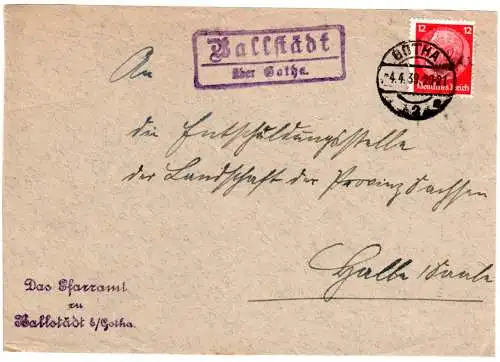 Ballstädt
über Gotha.
12 12
Deutsches Reich
GOTHA
-4.4.39.
2
An
die Entschuldungsstelle
der Landschaft der Provinz Sachsen
Halle/Saale
Das Pfarramt
zu
Ballstädt b/Gotha.